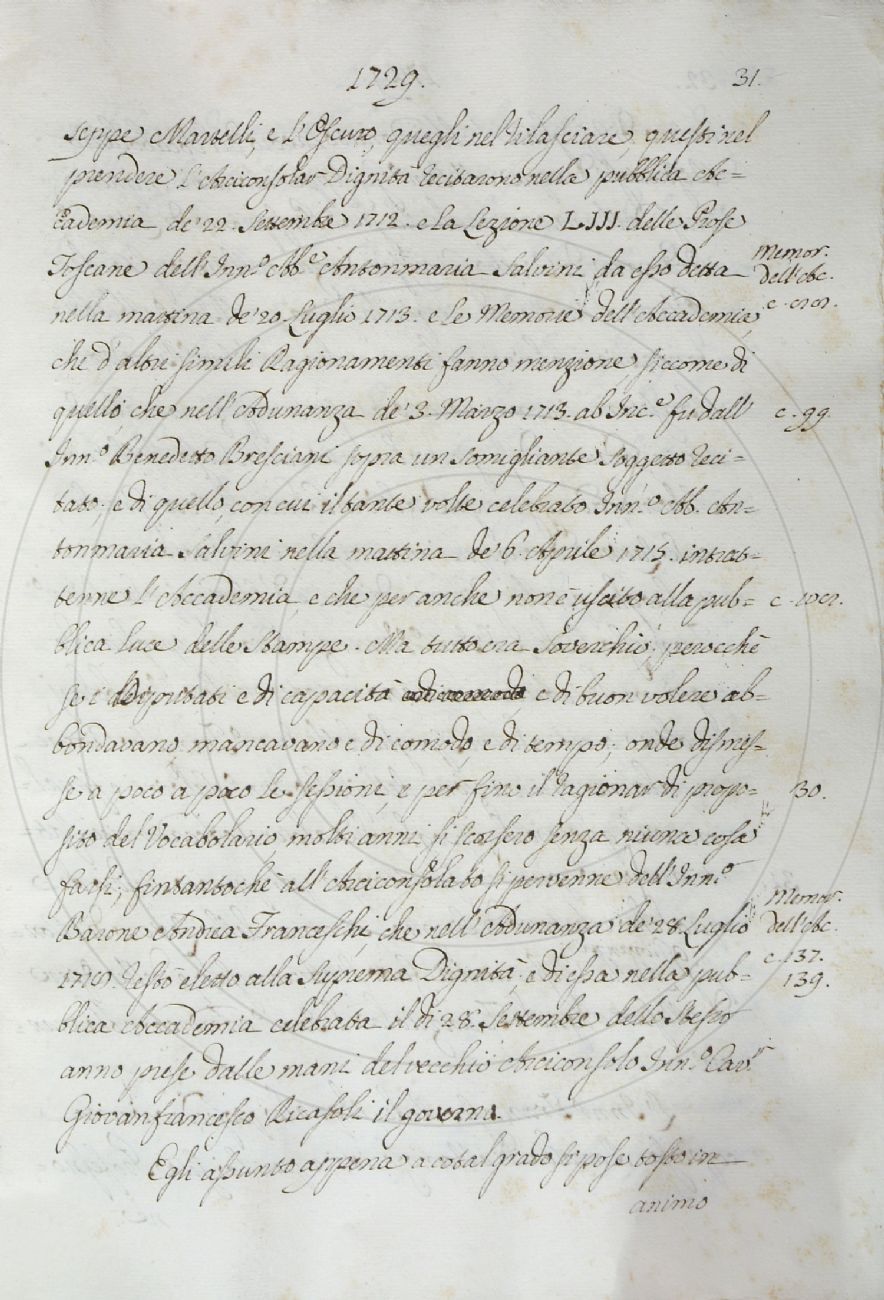 1729. 31.
seppe Martelli, e l'Oscuro, quegli nel rilasciare, questi nel
prendere l'Arciconsolar Dignità recitarono nella pubblica Ac=
cademia de' 22. Settembre 1712. e la Lezione LIII. delle Prose
Toscane dell'Inn.º Ab.e Antonmaria Salvini da esso detta
Memor.
dell'Ac.
nella mattina de' 20. Luglio 1713. e le Memorie dell'Accademia,
che d'altri simili Ragionamenti fanno menzione siccome di
quello, che nell'Adunanza de' 3. Marzo 1713. ab Inc.e fu dall'
c. 99.
Inn.º Benedetto Bresciani sopra un somigliante soggetto reci=
tato; e di quello, con cui il tante volte celebrato Inn.º Ab. An=
tonmaria Salvini nella mattina de' 6. Aprile 1715. intrat=
tenne l'Accademia, e che per anche non è uscito alla pub=
blica luce delle Stampe. Ma tutto era soverchio; perocchè
se i Deputati e di capacità e di buon volere ab=
bondavano mancavano e di comodo, e di tempo; onde dismes=
se a poco a poco le sessioni, e per fino il ragionar di propo=
30.
sito del Vocabolario molti anni si scorsero senza niuna cosa
farsi; fintantochè all'Arciconsolato si pervenne dell'Inn.º
Barone Andrea Franceschi, che nell'Adunanza de' 28. Luglio
Memor.
dell'Ac.
c. 137.
139.
1719. restò eletto alla Suprema Dignità; e di essa nella pub=
blica Accademia celebrata il dì 28. Settembre dello stesso
anno prese dalle mani del vecchio Arciconsolo Inn.º Cav.r
Giovanfrancesco Ricasoli il governo.
Egli assunto appena a cotal grado si pose tosto in
animo